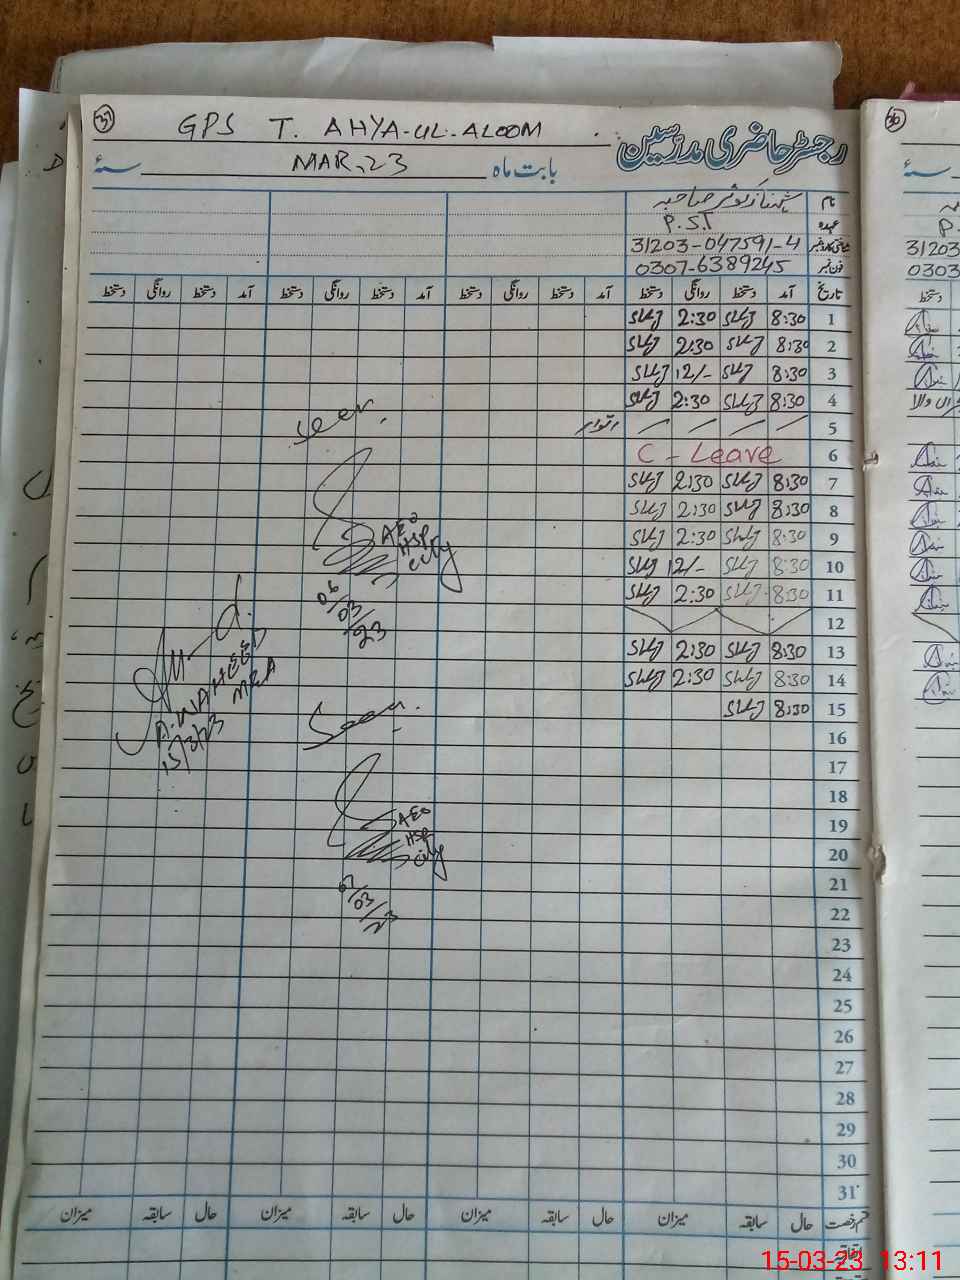 37
GPS T. AHYA-UL-ALOOM
رجسٹر حاضری مدرسین
بابت ماہ MAR.23 سنۂ
نام شہناز کوثر صاحبہ
عہدہ P.S.T
شناختی کارڈ نمبر 31203-047591-4
فون نمبر 0307-6389245
تاریخ آمد دستخط روانگی دستخط آمد دستخط روانگی دستخط آمد دستخط روانگی دستخط آمد دستخط روانگی دستخط
1 8:30 2:30
2 8:30 2:30
3 8:30 12/-
4 8:30 2:30
5 اتوار
6 C - Leave
7 8:30 2:30
8 8:30 2:30
9 8:30 2:30
10 8:30 12/-
11 8:30 2:30
12
13 8:30 2:30
14 8:30 2:30
15 8:30
16
17
18
19
20
21
22
23
24
25
26
27
28
29
30
31
seen.
AEO
HSP
city
06/03/23
A.WAHEED
MEA
15/3/23
Seen.
AEO
HSP
city
07/03/23
قسم رخصت حال سابقہ میزان حال سابقہ میزان حال سابقہ میزان حال سابقہ میزان
اتفاقیہ
سنۂ
31203
0303
دستخط
15-03-23 13:11